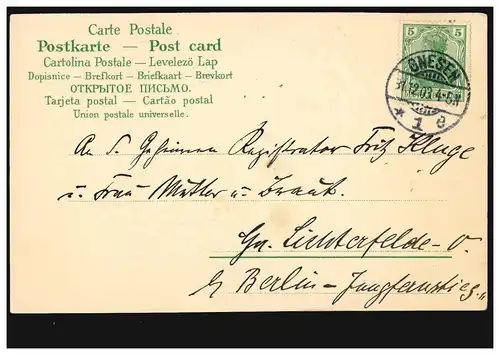 Carte Postale
Postkarte — Post card
Cartolina Postale — Levelező Lap
Dopisnice — Brefkort — Briefkaart — Brevkort
ОТКРЫТОЕ ПИСЬМО.
Tarjeta postal — Cartão postal
Union postale universelle.
5 5
GNESEN
31.12.03. 4-5N
* 1 d
An d. Geheimen Registrator Fritz Kluge
u. Frau Mutter u. Braut.
Gr. Lichterfelde-O.
b/ Berlin - Jungfernstieg